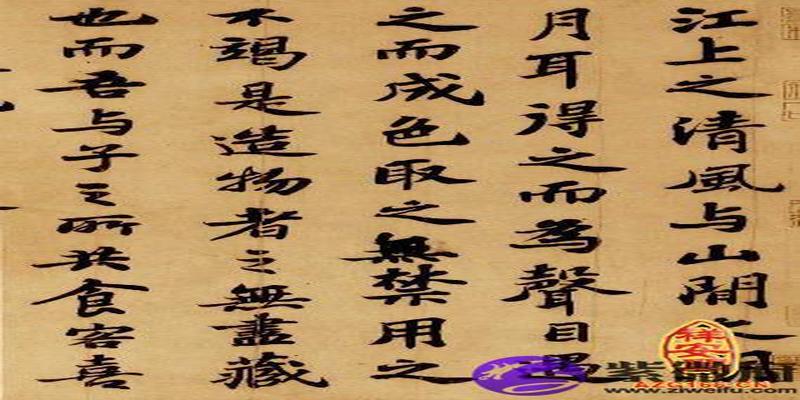 江上之清風与山間之明
月耳得之而為聲目遇
之而成色取之無禁用之
不竭是造物者之無盡藏
也而吾与子之所共食客喜
紫微府
www.ziweifu.com